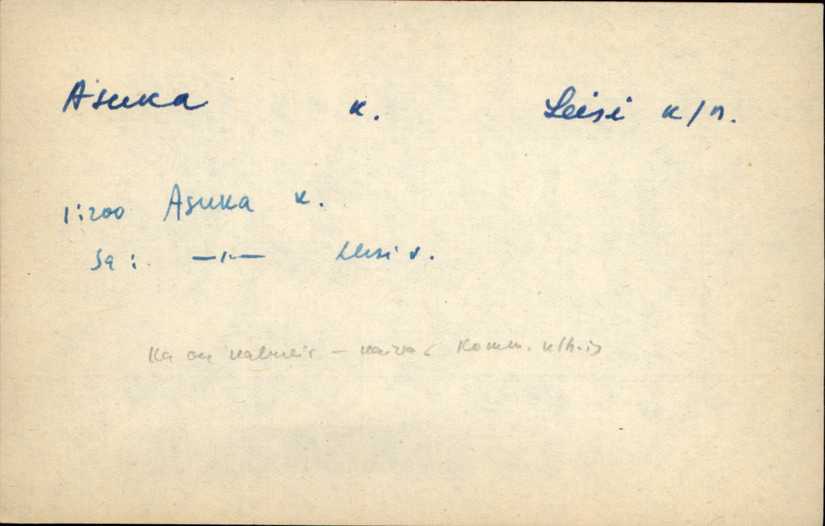 Asuka k. Leisi k/n.
1:200 Asuka k.
Sa: —"— Leisi v.
Ka on – Komm.